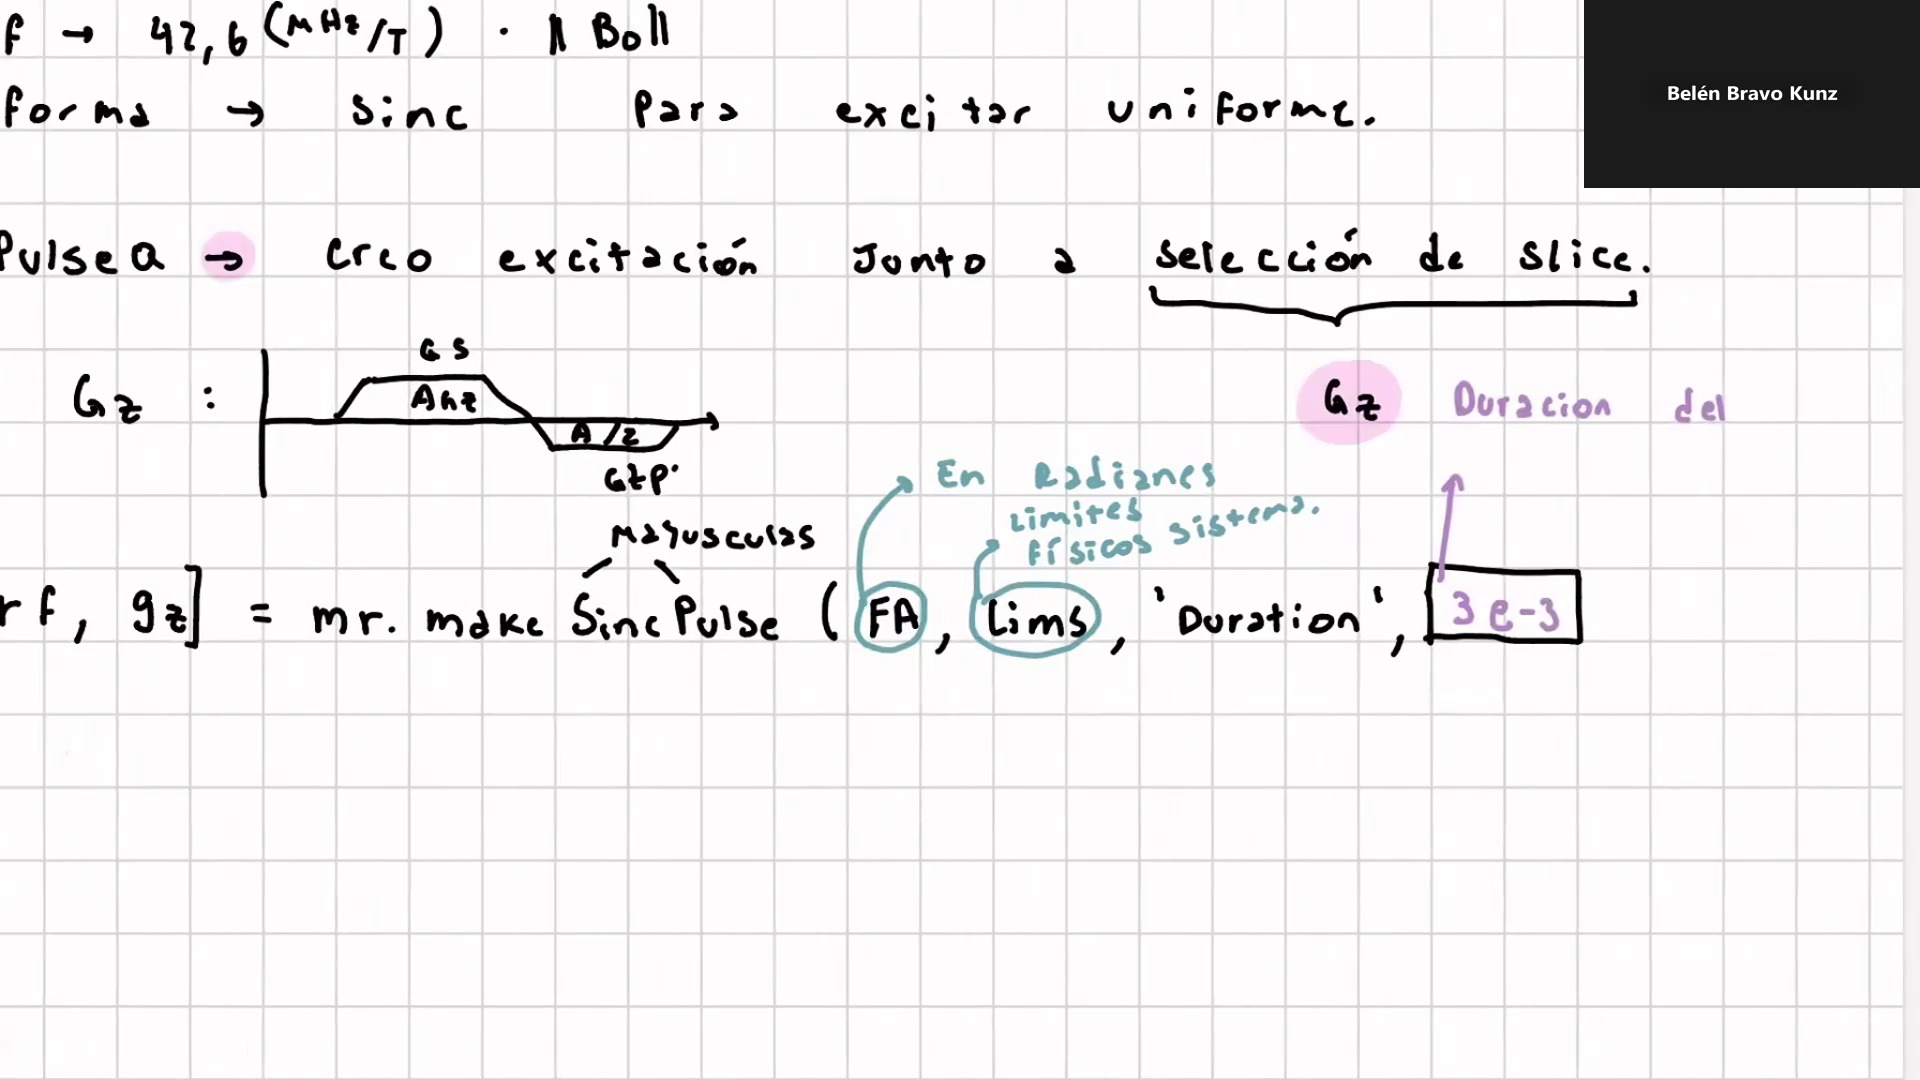 f → 42,6 (MHz/T) · || Bo||
forma → sinc para excitar uniforme.
Belén Bravo Kunz
Pulseq → creo excitación junto a selección de slice.
Gs
Gz : AGz
A/2
Gz Duracion del
En Radianes
Limites
físicos sistema.
Mayusculas
rf, gz] = mr. make SincPulse (FA, Lims, 'Duration', 3e-3